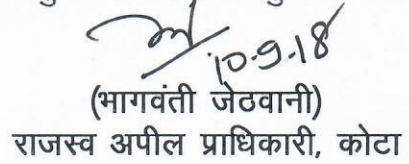 10.9.18
(भागवंती जेठवानी)
राजस्व अपील प्राधिकारी, कोटा